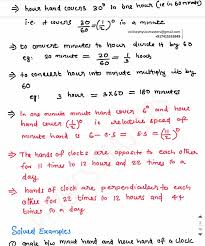 ⇒ hour hand covers 30° in one hour (ie in 60 minutes)
i.e. it covers 30/60 = (1/2)° in a minute
⇒ to convert minutes to hour divide it by 60
eg: 30 minute = 30/60 = 1/2 hour
⇒ to convert hour into minute multiply it by 60
eg: 3 hour = 3×60 = 180 minutes
⇒ In one minute minute hand covers 6° and hour
hand covers (1/2)° is relative speed of
minute hand is 6 - 0.5 = 5.5 = (11/2)°
⇒ The hands of clock are opposite to each other
for 11 times in 12 hours and 22 times in a
day.
⇒ hands of clock are perpendicular to each
other for 22 times in 12 hours and 44
times in a day
Solved Examples
① angle b/w minut hand and hour hand of a clock